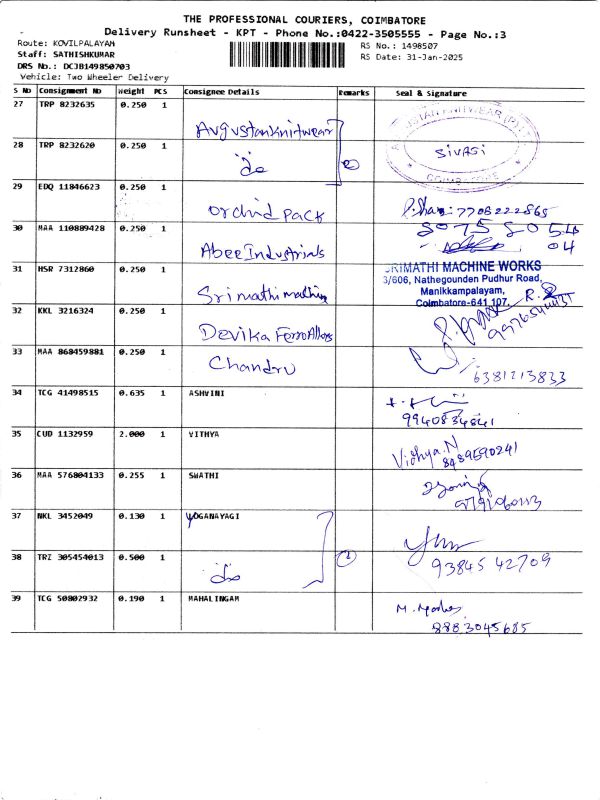 THE PROFESSIONAL COURIERS, COIMBATORE
Delivery Runsheet - KPT - Phone No.:0422-3505555 - Page No.:3
Route: KOVILPALAYAM
RS No.: 1498507
Staff: SATHISHKUMAR
RS Date: 31-Jan-2025
DRS No.: DCJB149850703
Vehicle: Two Wheeler Delivery
S No Consignment No Weight PCS Consignee Details Remarks Seal & Signature
27 TRP 8232635 0.250 1 Augustan Knitwear
28 TRP 8232620 0.250 1 do 2 SIVAGI
COIMBATORE
29 EDQ 11846623 0.250 1 Orchid Pack 7708222865
30 MAA 110889428 0.250 1 Abee Industrials 80 75 80 54
04
31 HSR 7312860 0.250 1 Srimathi machine SRIMATHI MACHINE WORKS
3/606, Nathegounden Pudhur Road,
Manikkampalayam,
Coimbatore-641 107.
32 KKL 3216324 0.250 1 Devika Ferro Alloys
33 MAA 868459881 0.250 1 Chandru 6381213833
34 TCG 41498515 0.635 1 ASHVINI
9940834841
35 CUD 1132959 2.000 1 VITHYA Vidhya.N
8489590241
36 MAA 576804133 0.255 1 SWATHI
37 NKL 3452049 0.130 1 YOGANAYAGI
38 TRZ 305454013 0.500 1 do 2 9384542709
39 TCG 50802932 0.190 1 MAHALINGAM
8883045685